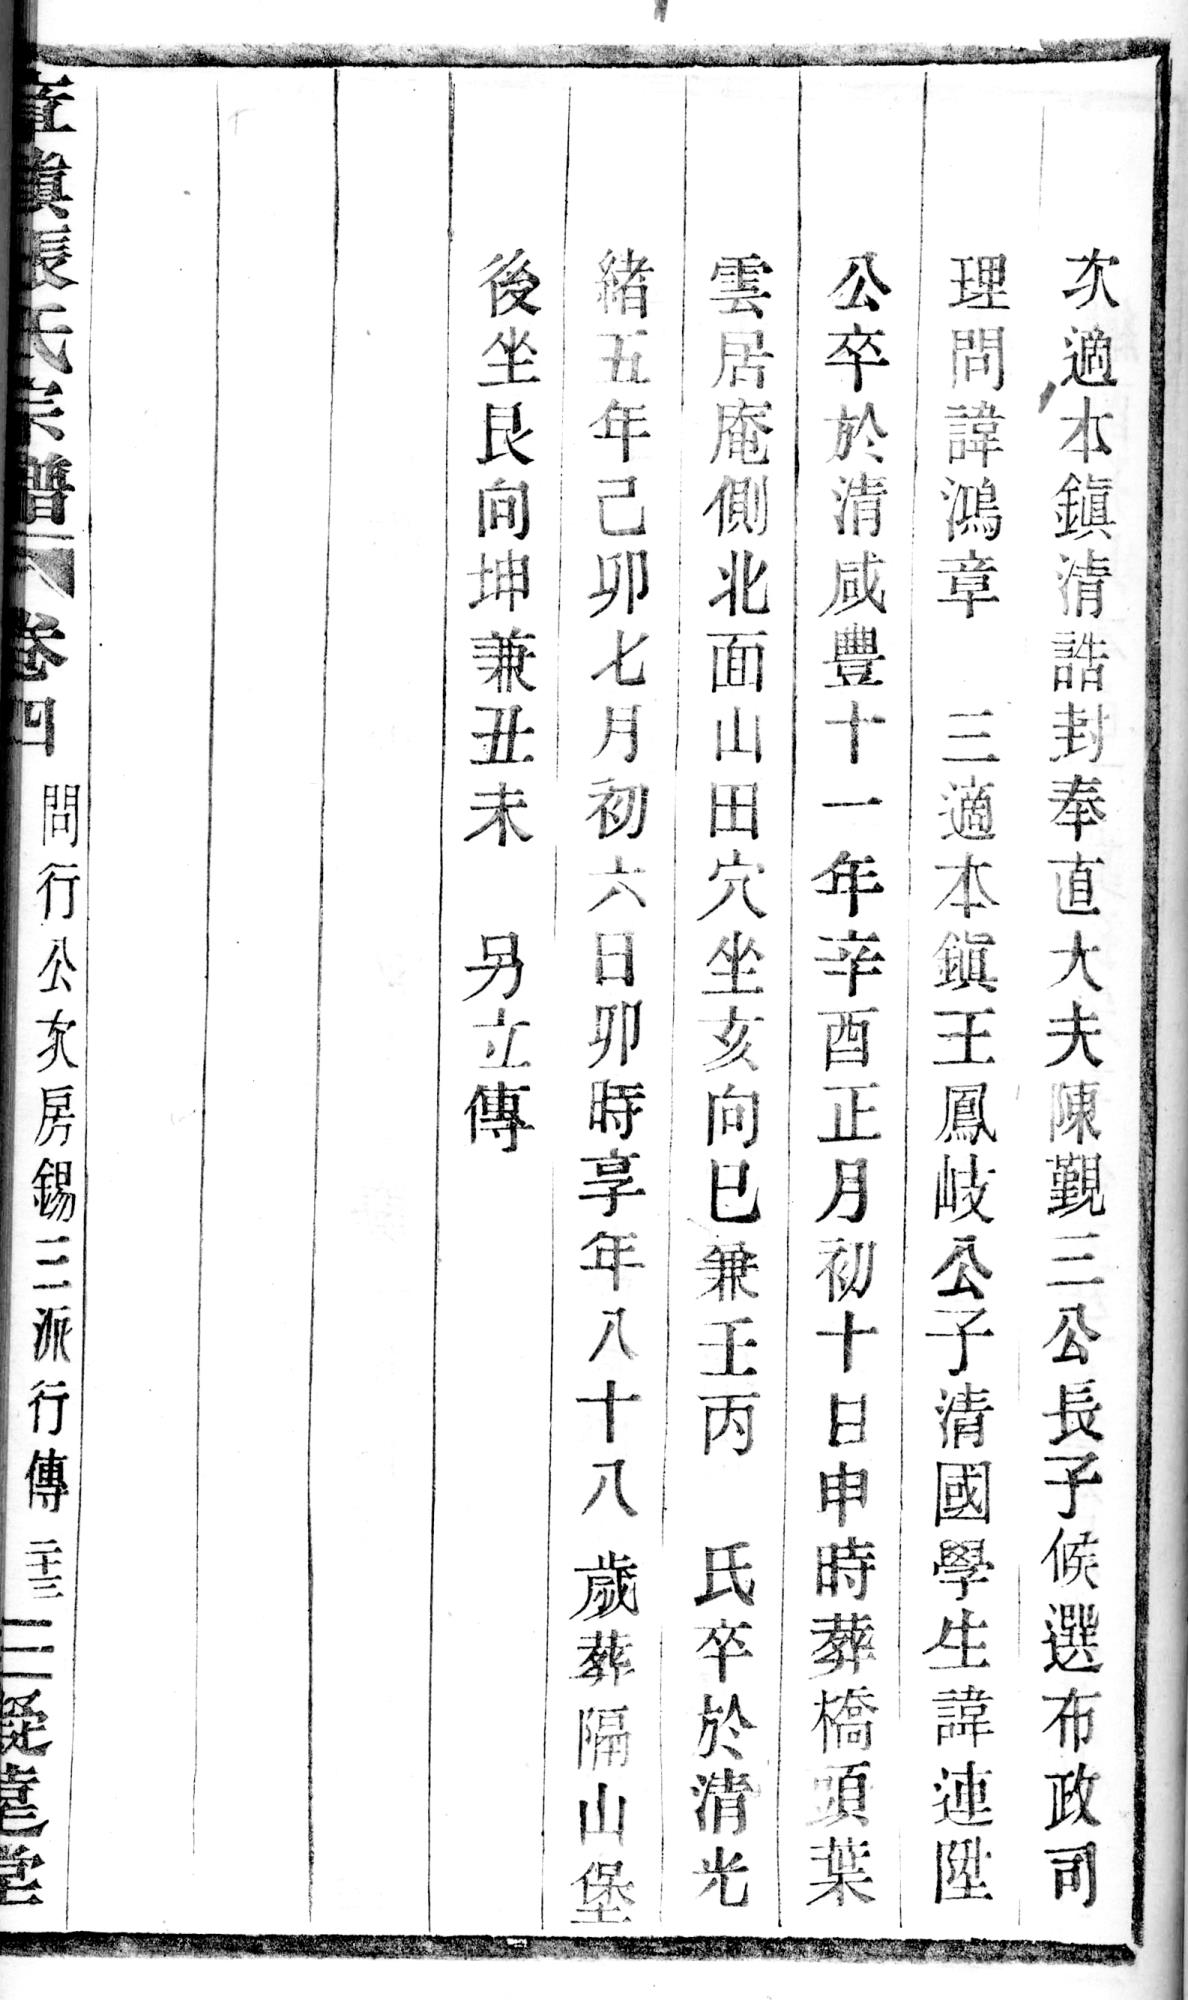 次適本鎭清誥封奉直大夫陳觐三公長子候選布政司
理問諱鴻章　三適本鎭王鳳岐公子清國學生諱連陞
公卒於清咸豐十一年辛酉正月初十日申時葬橋頭葉
雲居庵側北面山田穴坐亥向巳兼壬丙　氏卒於清光
緒五年己卯七月初六日卯時享年八十八歲葬隔山堡
後坐艮向坤兼丑未　另立傳
鎭張氏宗譜　卷四　問行公次房錫三派行傳　二十三　三凝堂